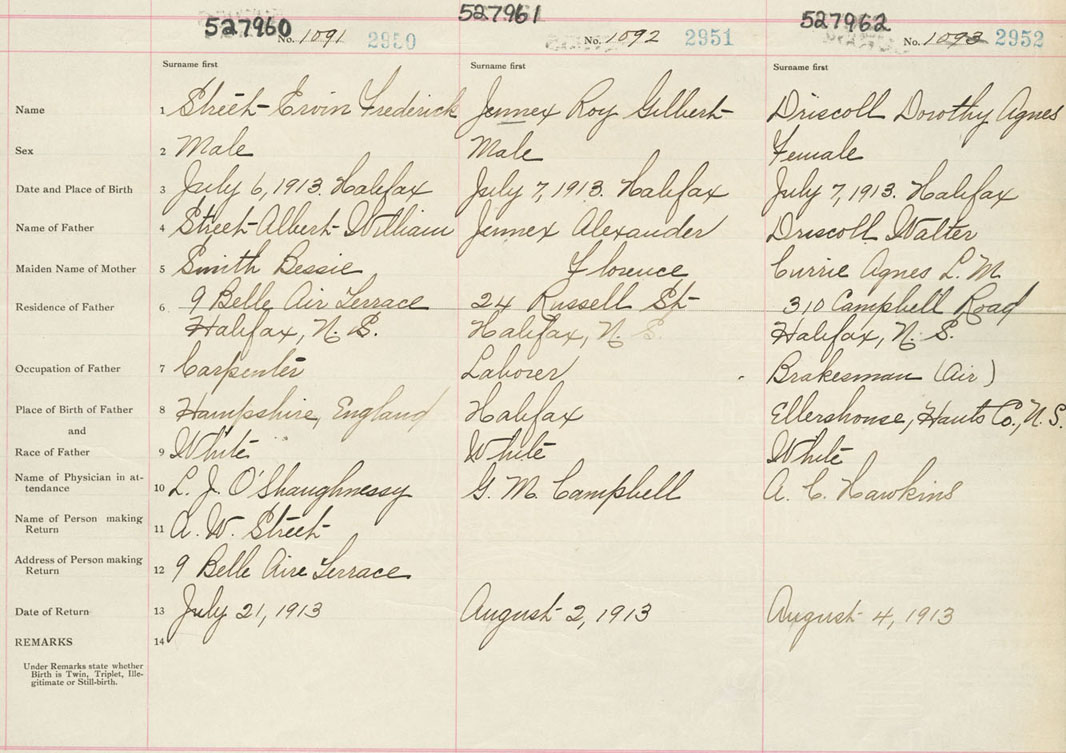 527960 527961 527962
No. 1091 2950 No. 1092 2951 No. 1093 2952
Surname first Surname first Surname first
Name 1 Street Ervin Frederick Jennex Roy Gilbert Driscoll Dorothy Agnes
Sex 2 Male Male Female
Date and Place of Birth 3 July 6, 1913. Halifax July 7, 1913. Halifax July 7, 1913. Halifax
Name of Father 4 Street Albert William Jennex Alexander Driscoll Walter
Maiden Name of Mother 5 Smith Bessie Florence Currie Agnes L. M
Residence of Father 6 9 Belle Air Terrace 24 Russell St 310 Campbell Road
Halifax, N. S. Halifax, N. S. Halifax, N. S.
Occupation of Father 7 Carpenter Laborer Brakesman (Air)
Place of Birth of Father 8 Hampshire, England Halifax Ellershouse, Hants Co., N. S.
and
Race of Father 9 White White White
Name of Physician in at-
tendance 10 L. J. O'Shaughnessy G. M. Campbell A. C. Hawkins
Name of Person making
Return 11 A. W. Street
Address of Person making
Return 12 9 Belle Aire Terrace
Date of Return 13 July 21, 1913 August 2, 1913 August 4, 1913
REMARKS 14
Under Remarks state whether
Birth is Twin, Triplet, Ille-
gitimate or Still-birth.